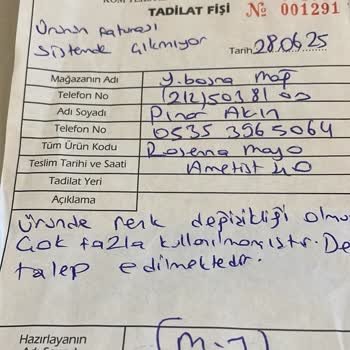 TADİLAT FİŞİ № 001291
Ürünün faturası
sistemde çıkmıyor
Tarih 28.06.25
Mağazanın Adı y.bosna map
Telefon No (212) 503 81 00
Adı Soyadı Pınar Akın
Telefon No 0535 396 5064
Tüm Ürün Kodu Rosenna Mayo
Teslim Tarihi ve Saati Ametist 40
Tadilat Yeri
Açıklama
Üründe renk değişikliği olmu
Çok fazla kullanılmamıştır. De
talep edilmektedir.
Hazırlayanın